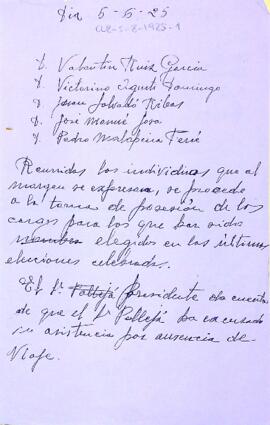 Dia 5-5-25
02-5-8-1925-1
D. Valentin Ruiz Garcia
D. Victorino Domingo
D. Juan Salvadó Ribas
D. José
D. Pedro Ferré
Reunidos los individuos que al
margen se expresan, se procedo
a la toma de posesión de los
cargos para los que han sido
elegidos en las últimas
elecciones celebradas.
El Sr. Pallejá presidente da cuenta
de que el Sr Pallejá ha excusado
su asistencia por ausencia de
viaje.